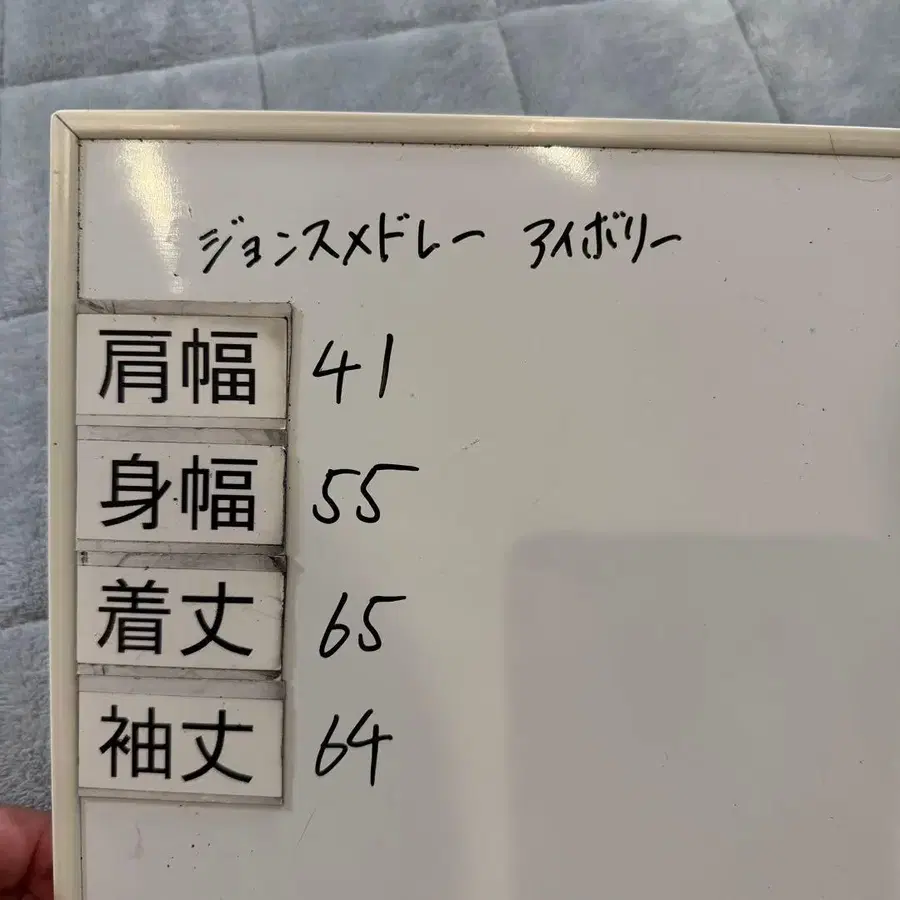 ジョンスメドレー アイボリー
肩幅 41
身幅 55
着丈 65
袖丈 64